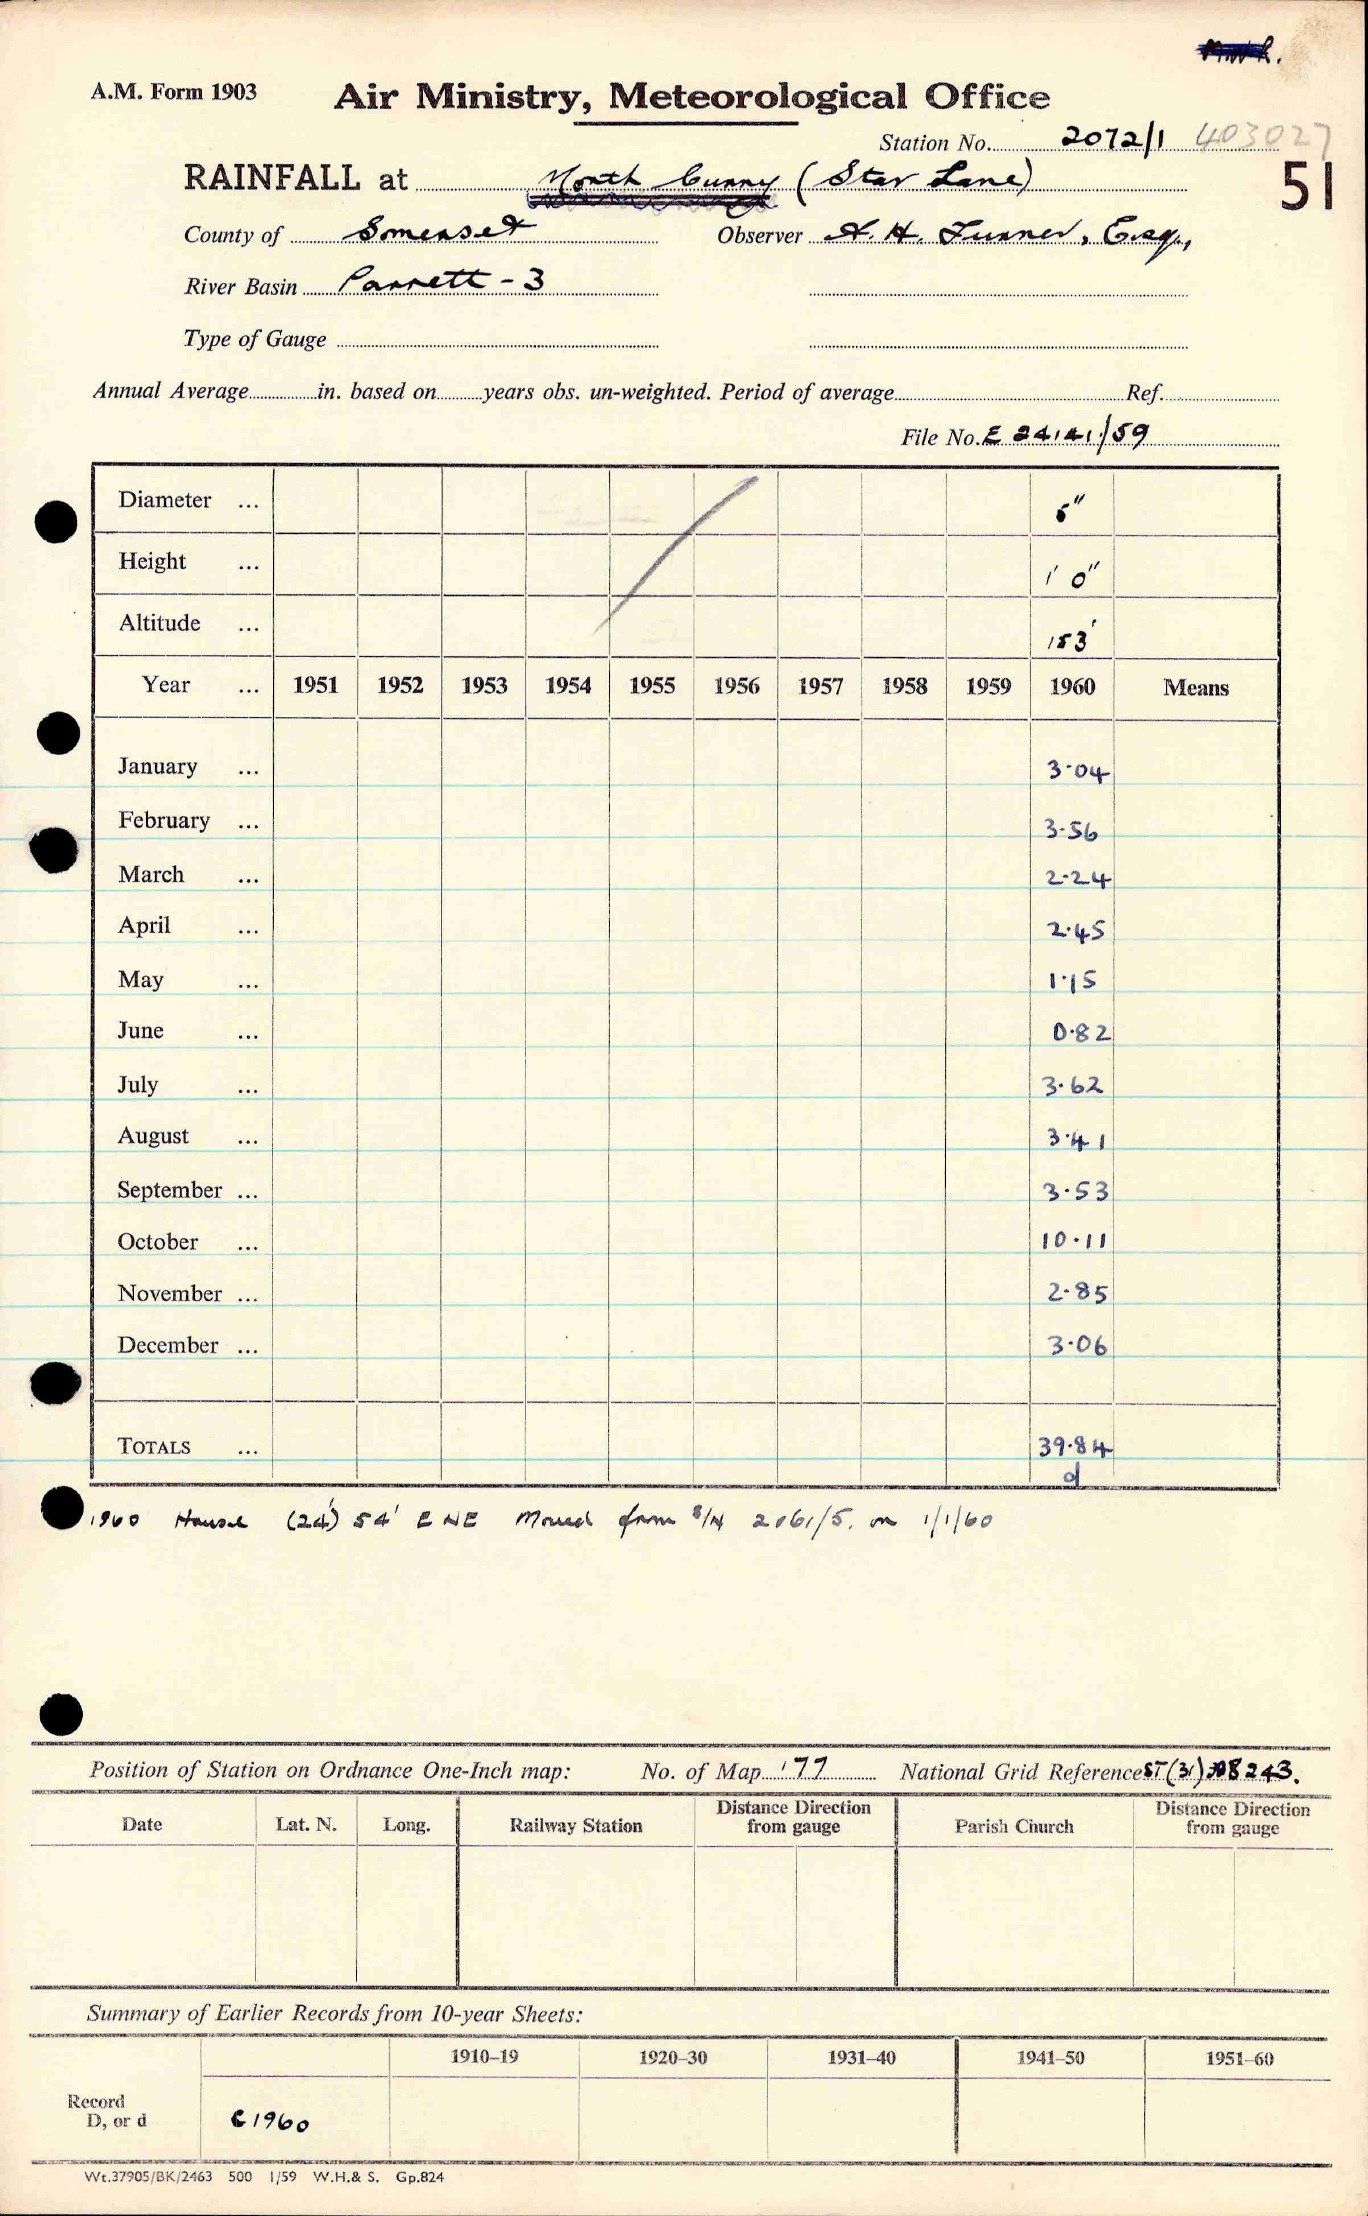 A.M. Form 1903 Air Ministry, Meteorological Office
Station No. 2072/1 403027
RAINFALL at North Curry (Star Lane) 51
County of Somerset Observer A. H. Turner, Esq.,
River Basin Parrett - 3
Type of Gauge
Annual Average in. based on years obs. un-weighted. Period of average Ref.
File No. E 24141/59
Diameter ... 5"
Height ... 1' 0"
Altitude ... 153'
Year ... 1951 1952 1953 1954 1955 1956 1957 1958 1959 1960 Means
January ... 3·04
February ... 3·56
March ... 2·24
April ... 2·45
May ... 1·15
June ... 0·82
July ... 3·62
August ... 3·41
September ... 3·53
October ... 10·11
November ... 2·85
December ... 3·06
TOTALS ... 39·84
d
1960 House (24') 54' ENE Moved from S/N 2061/5. on 1/1/60
Position of Station on Ordnance One-Inch map: No. of Map 177 National Grid Reference ST(31) 8243.
Date Lat. N. Long. Railway Station Distance Direction from gauge Parish Church Distance Direction from gauge
Summary of Earlier Records from 10-year Sheets:
1910–19 1920–30 1931–40 1941–50 1951–60
Record
D, or d C1960
Wt.37905/BK/2463 500 1/59 W.H.& S. Gp.824